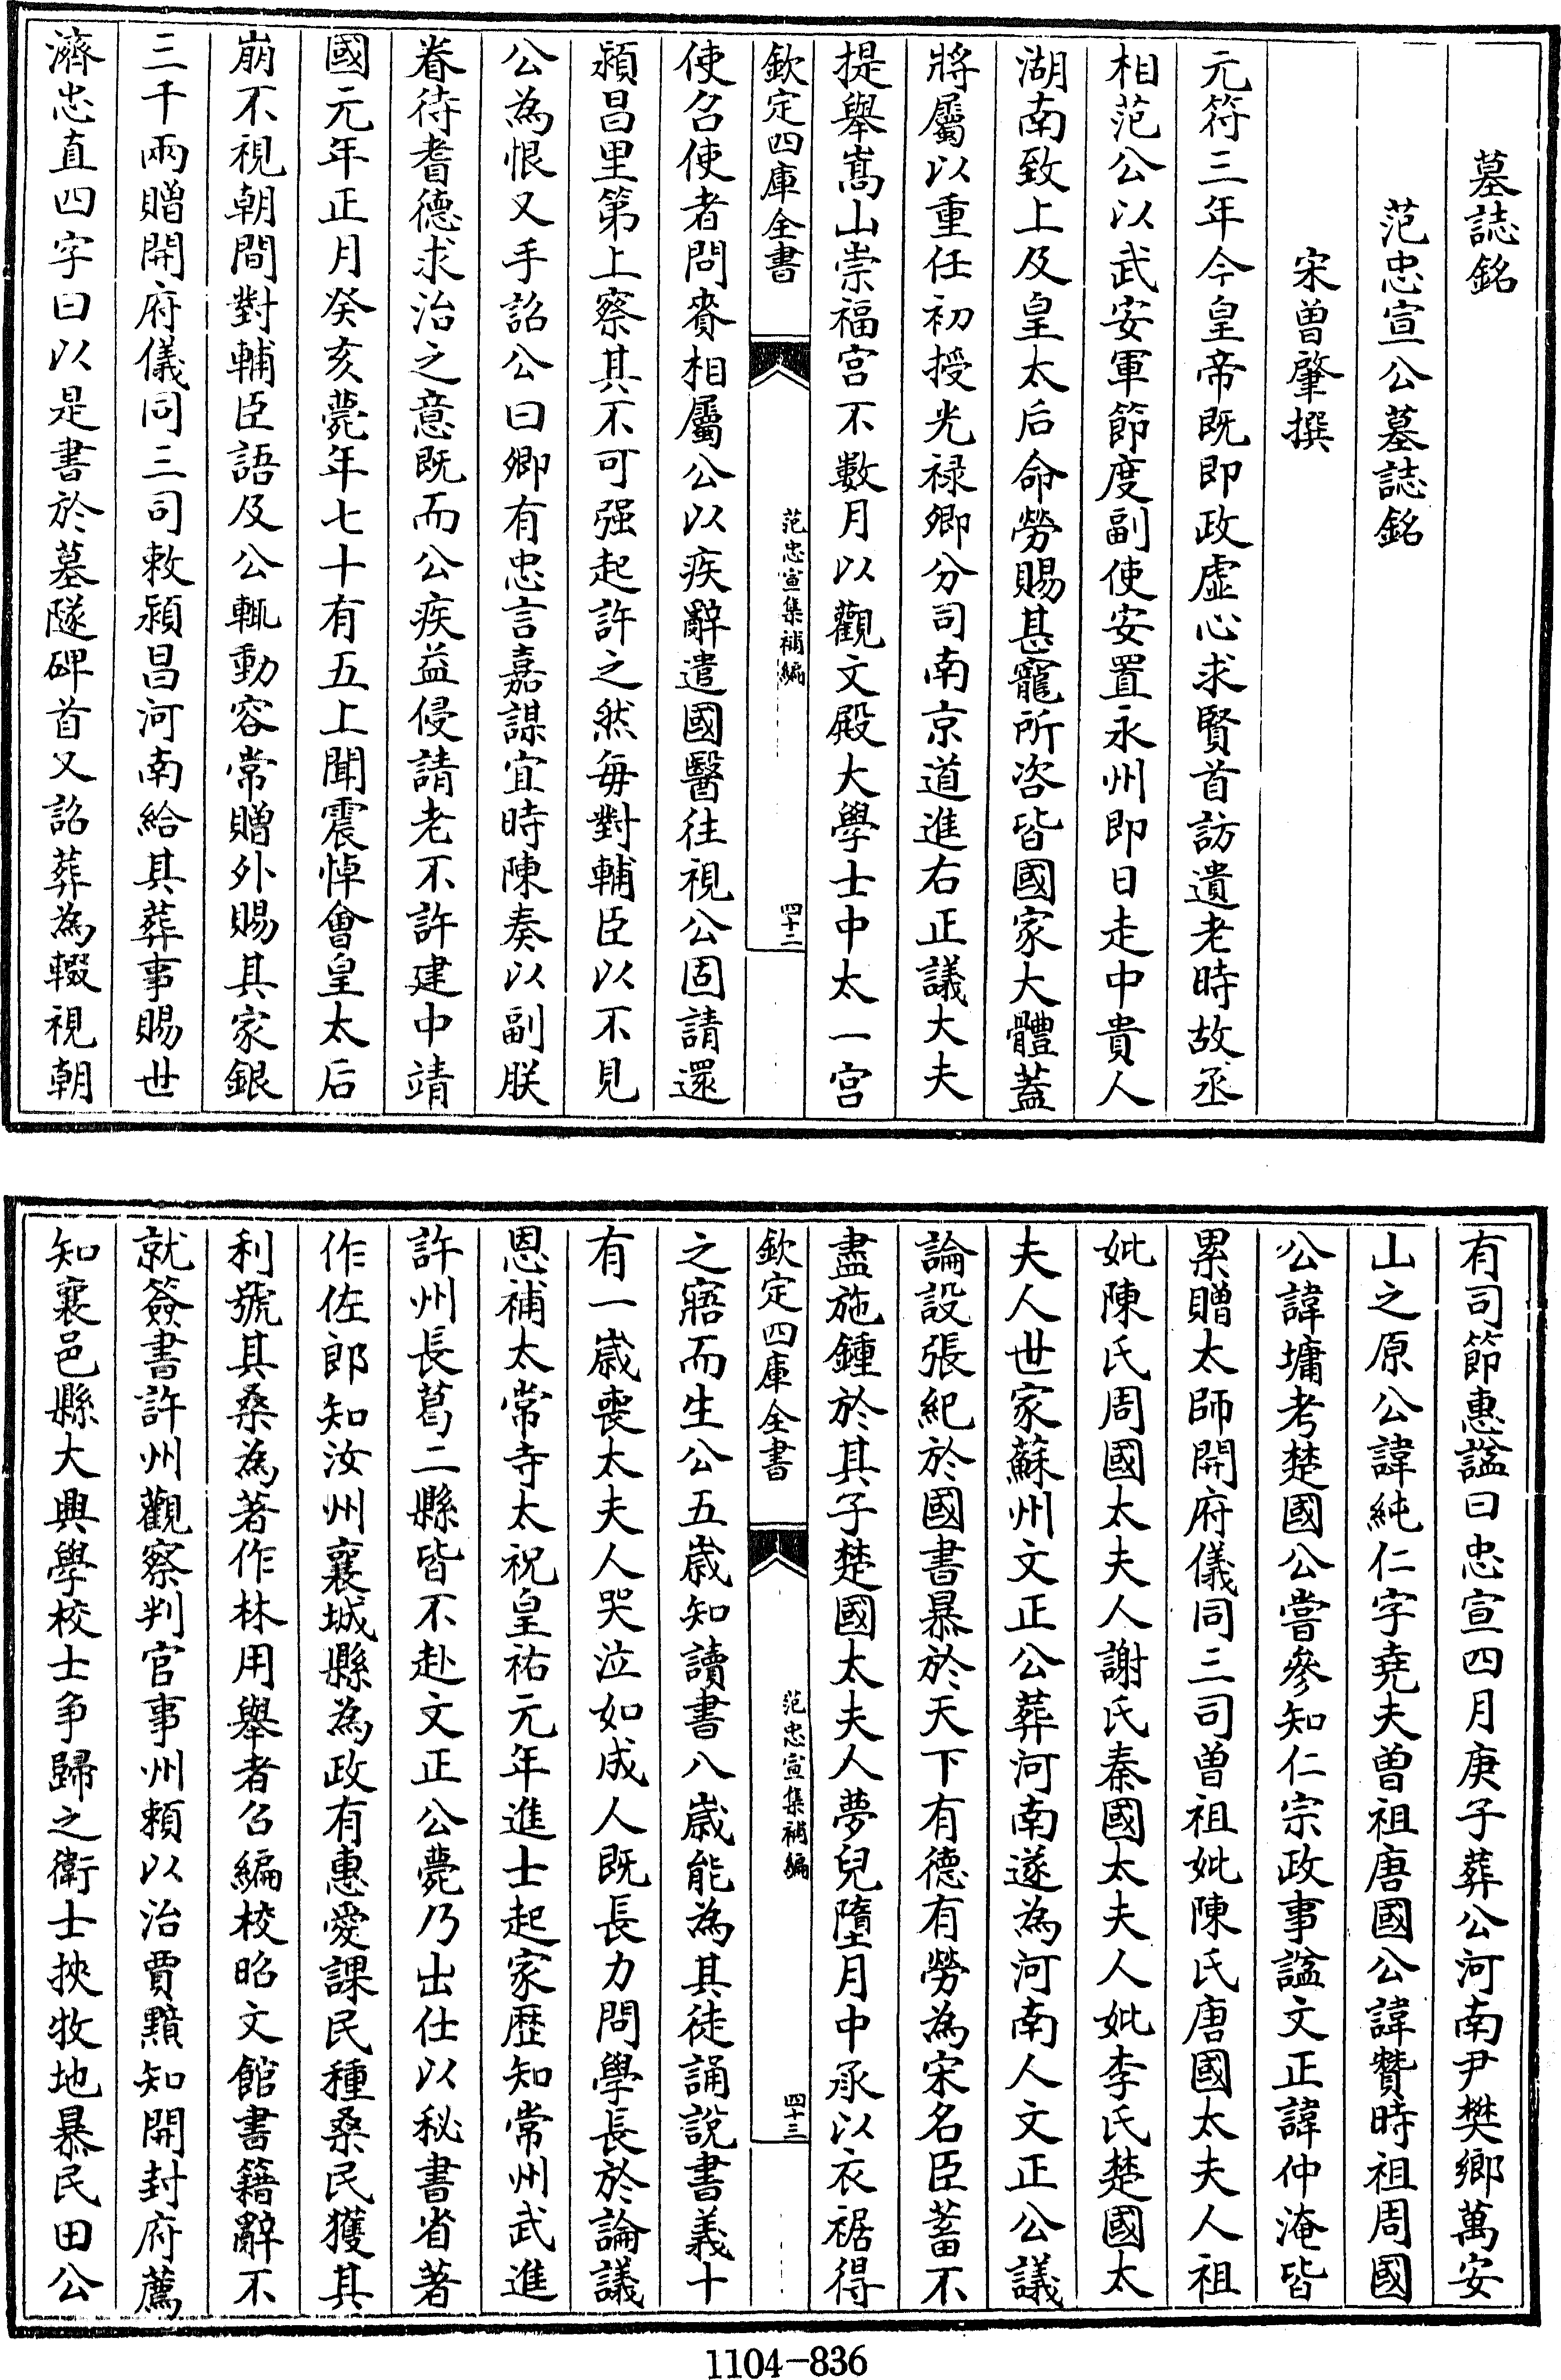 墓誌銘
范忠宣公墓誌銘
宋曽肇撰
元符三年今皇帝既即政虚心求賢首訪遺老時故丞
相范公以武安軍節度副使安置永州即日走中貴人
湖南致上及皇太后命勞賜甚寵所咨皆國家大體葢
將屬以重任初授光禄卿分司南京道進右正議大夫
提舉嵩山崇福宫不數月以觀文殿大學士中太一宫
欽定四庫全書
范忠宣集補編
四十二
使召使者問賚相屬公以疾辭遣國醫往視公固請還
潁昌里第上察其不可强起許之然每對輔臣以不見
公為恨又手詔公曰卿有忠言嘉謀宜時陳奏以副朕
眷待耆德求治之意既而公疾益侵請老不許建中靖
國元年正月癸亥薨年七十有五上聞震悼會皇太后
崩不視朝間對輔臣語及公輒動容常贈外賜其家銀
三千兩贈開府儀同三司敕潁昌河南給其葬事賜世
濟忠直四字曰以是書於墓隧碑首又詔葬為輟視朝
有司節惠諡曰忠宣四月庚子葬公河南尹樊鄉萬安
山之原公諱純仁字堯夫曽祖唐國公諱贊時祖周國
公諱墉考楚國公嘗參知仁宗政事諡文正諱仲淹皆
累贈太師開府儀同三司曽祖妣陳氏唐國太夫人祖
妣陳氏周國太夫人謝氏秦國太夫人妣李氏楚國太
夫人世家蘇州文正公葬河南遂為河南人文正公議
論設張紀於國書暴於天下有德有勞為宋名臣蓄不
盡施鍾於其子楚國太夫人夢兒墮月中承以衣裾得
欽定四庫全書
范忠宣集補編
四十三
之寤而生公五歳知讀書八歳能為其徒誦說書義十
有一歳喪太夫人哭泣如成人既長力問學長於論議
恩補太常寺太祝皇祐元年進士起家歴知常州武進
許州長葛二縣皆不赴文正公薨乃出仕以秘書省著
作佐郎知汝州襄城縣為政有惠愛課民種桑民獲其
利號其桑為著作林用舉者召編校昭文館書籍辭不
就簽書許州觀察判官事州頼以治賈黯知開封府薦
知襄邑縣大興學校士争歸之衛士挾牧地暴民田公
1104-836